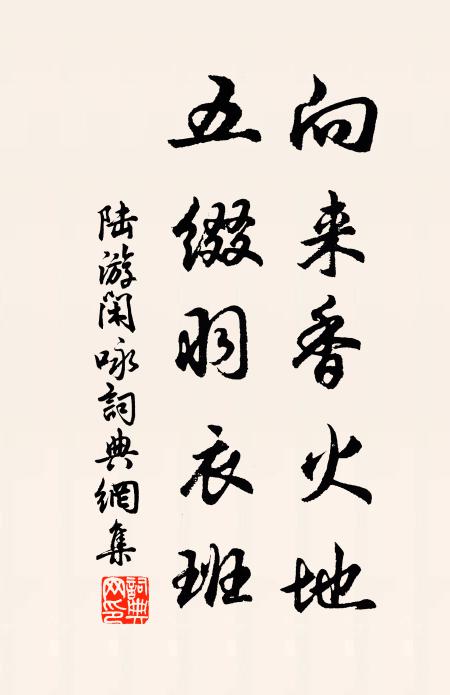 向来香火地
五缀羽衣班
陆游闲咏詞典網集
詞典網印